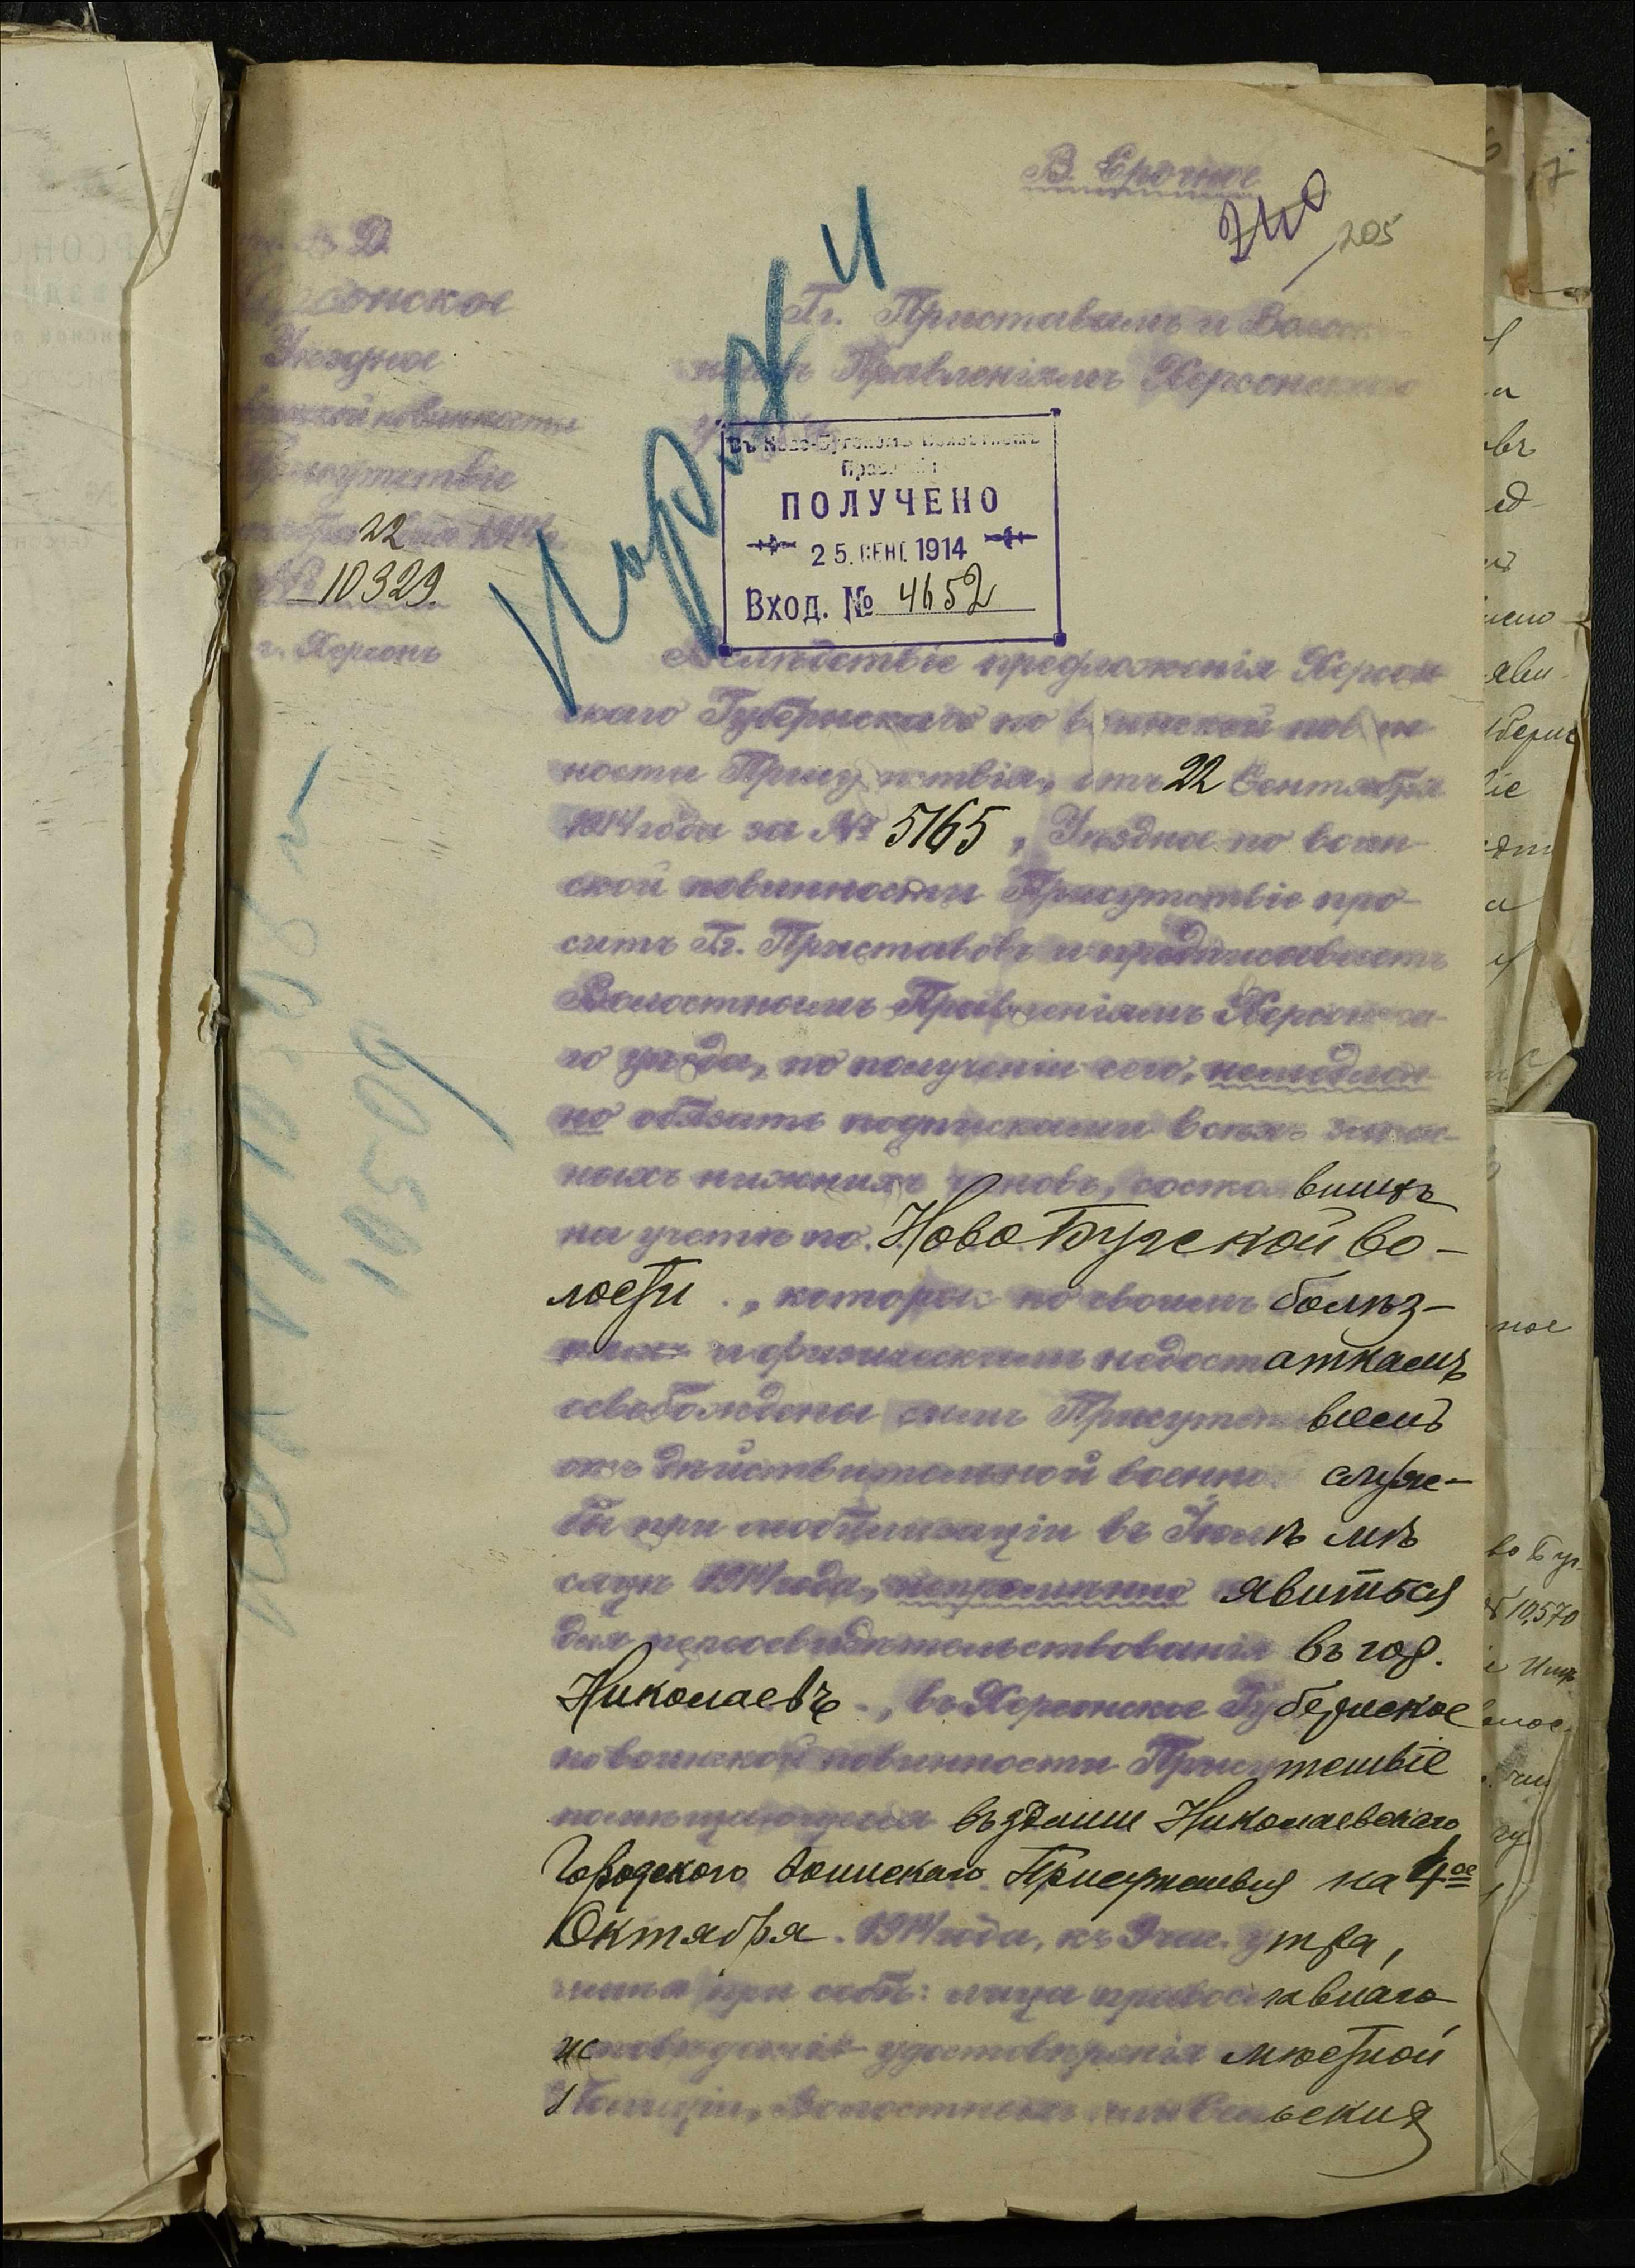 В. Срочно
240
205
М. В. Д.
Херсонское
Уѣздное
воинской повинности
Присутствіе
22 1914 г.
№ 10329.
г. Херсонъ
Гг. Приставамъ и Волост-
нымъ Правленіямъ Херсонскаго
уѣзда
Въ Ново-Бугскомъ Волостномъ
Правленіи
ПОЛУЧЕНО
25. СЕН. 1914
Вход. № 4652
Вслѣдствіе предложенія Херсон-
скаго Губернскаго по воинской повин-
ности Присутствія, отъ 22 Сентября
1914 года за № 5165, Уѣздное по воин-
ской повинности Присутствіе про-
ситъ Гг. Приставовъ и предписываетъ
Волостнымъ Правленіямъ Херсонска-
го уѣзда, по полученіи сего, немедлен-
но обязать подписками всѣхъ запас-
ныхъ нижнихъ чиновъ, состоявшихъ
на учетѣ по Ново Бугской во-
лости, которые по своимъ болѣз-
нямъ и физическимъ недостаткамъ
освобождены симъ Присутствіемъ
отъ дѣйствительной военной служ-
бы при мобилизаціи въ Іюлѣ мѣ-
сяцѣ 1914 года, непремѣнно явиться
для переосвидѣтельствованія въ гор.
Николаевъ, въ Херсонское Губернское
по воинской повинности Присутствіе
помѣщающееся въ зданіи Николаевскаго
Городского Воинскаго Присутствія на 4ое
Октября 1914 года, къ 9 час. утра,
имѣя при себѣ: лица православнаго
исповѣданія удостовѣренія мѣстной
Полиціи, Волостныхъ или Сельскихъ